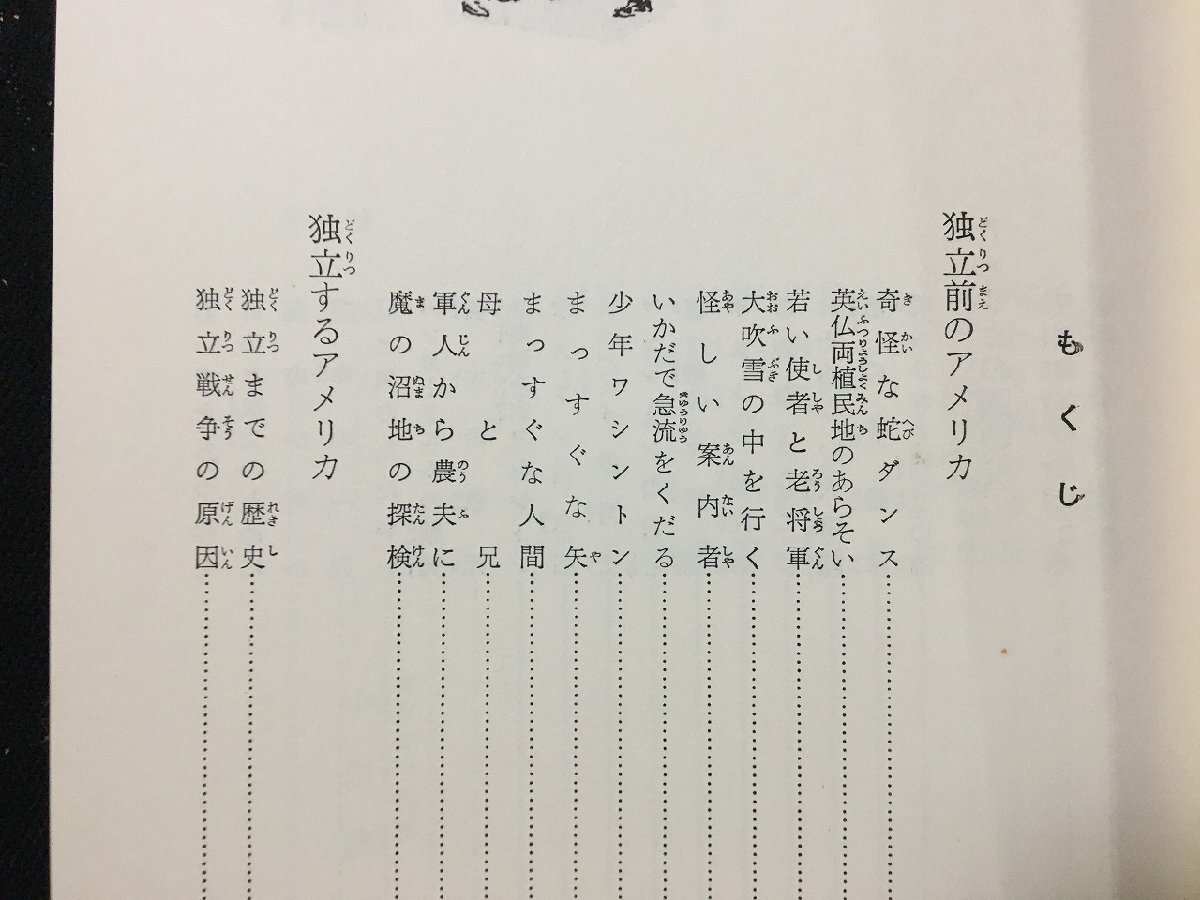 もくじ
独立前のアメリカ
奇怪な蛇ダンス
英仏両植民地のあらそい
若い使者と老将軍
大吹雪の中を行く
怪しい案内者
いかだで急流をくだる
少年ワシントン
まっすぐな矢
まっすぐな人間
母と兄
軍人から農夫に
魔の沼地の探検
独立するアメリカ
独立までの歴史
独立戦争の原因